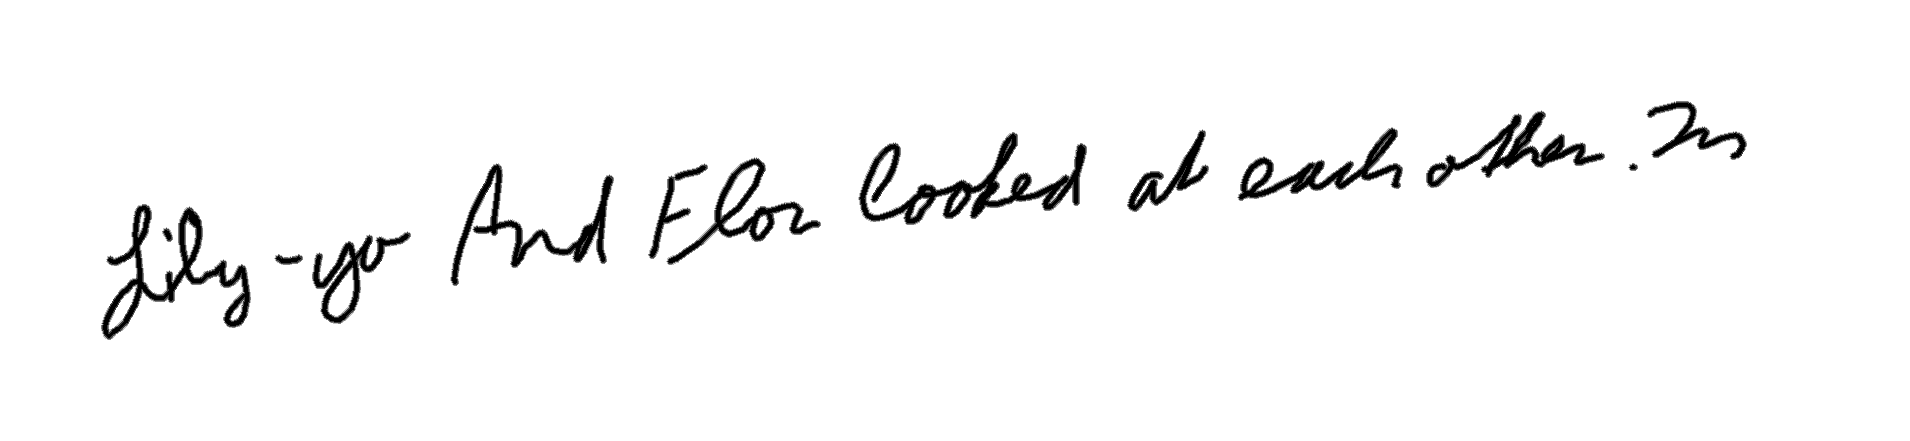 Lily-yo And Flor looked at each other. In